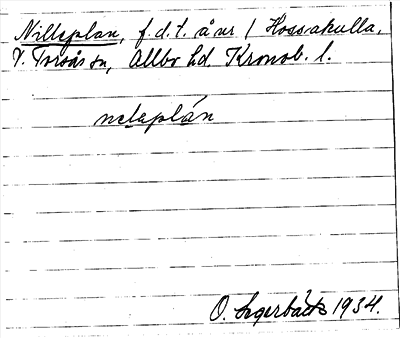 Nilleplan, f.d.t. å ur / Hossakulla,
V. Torsås sn, Allbo hd. Kronob. l.
nelaplán
O. Segerbäck 1934.